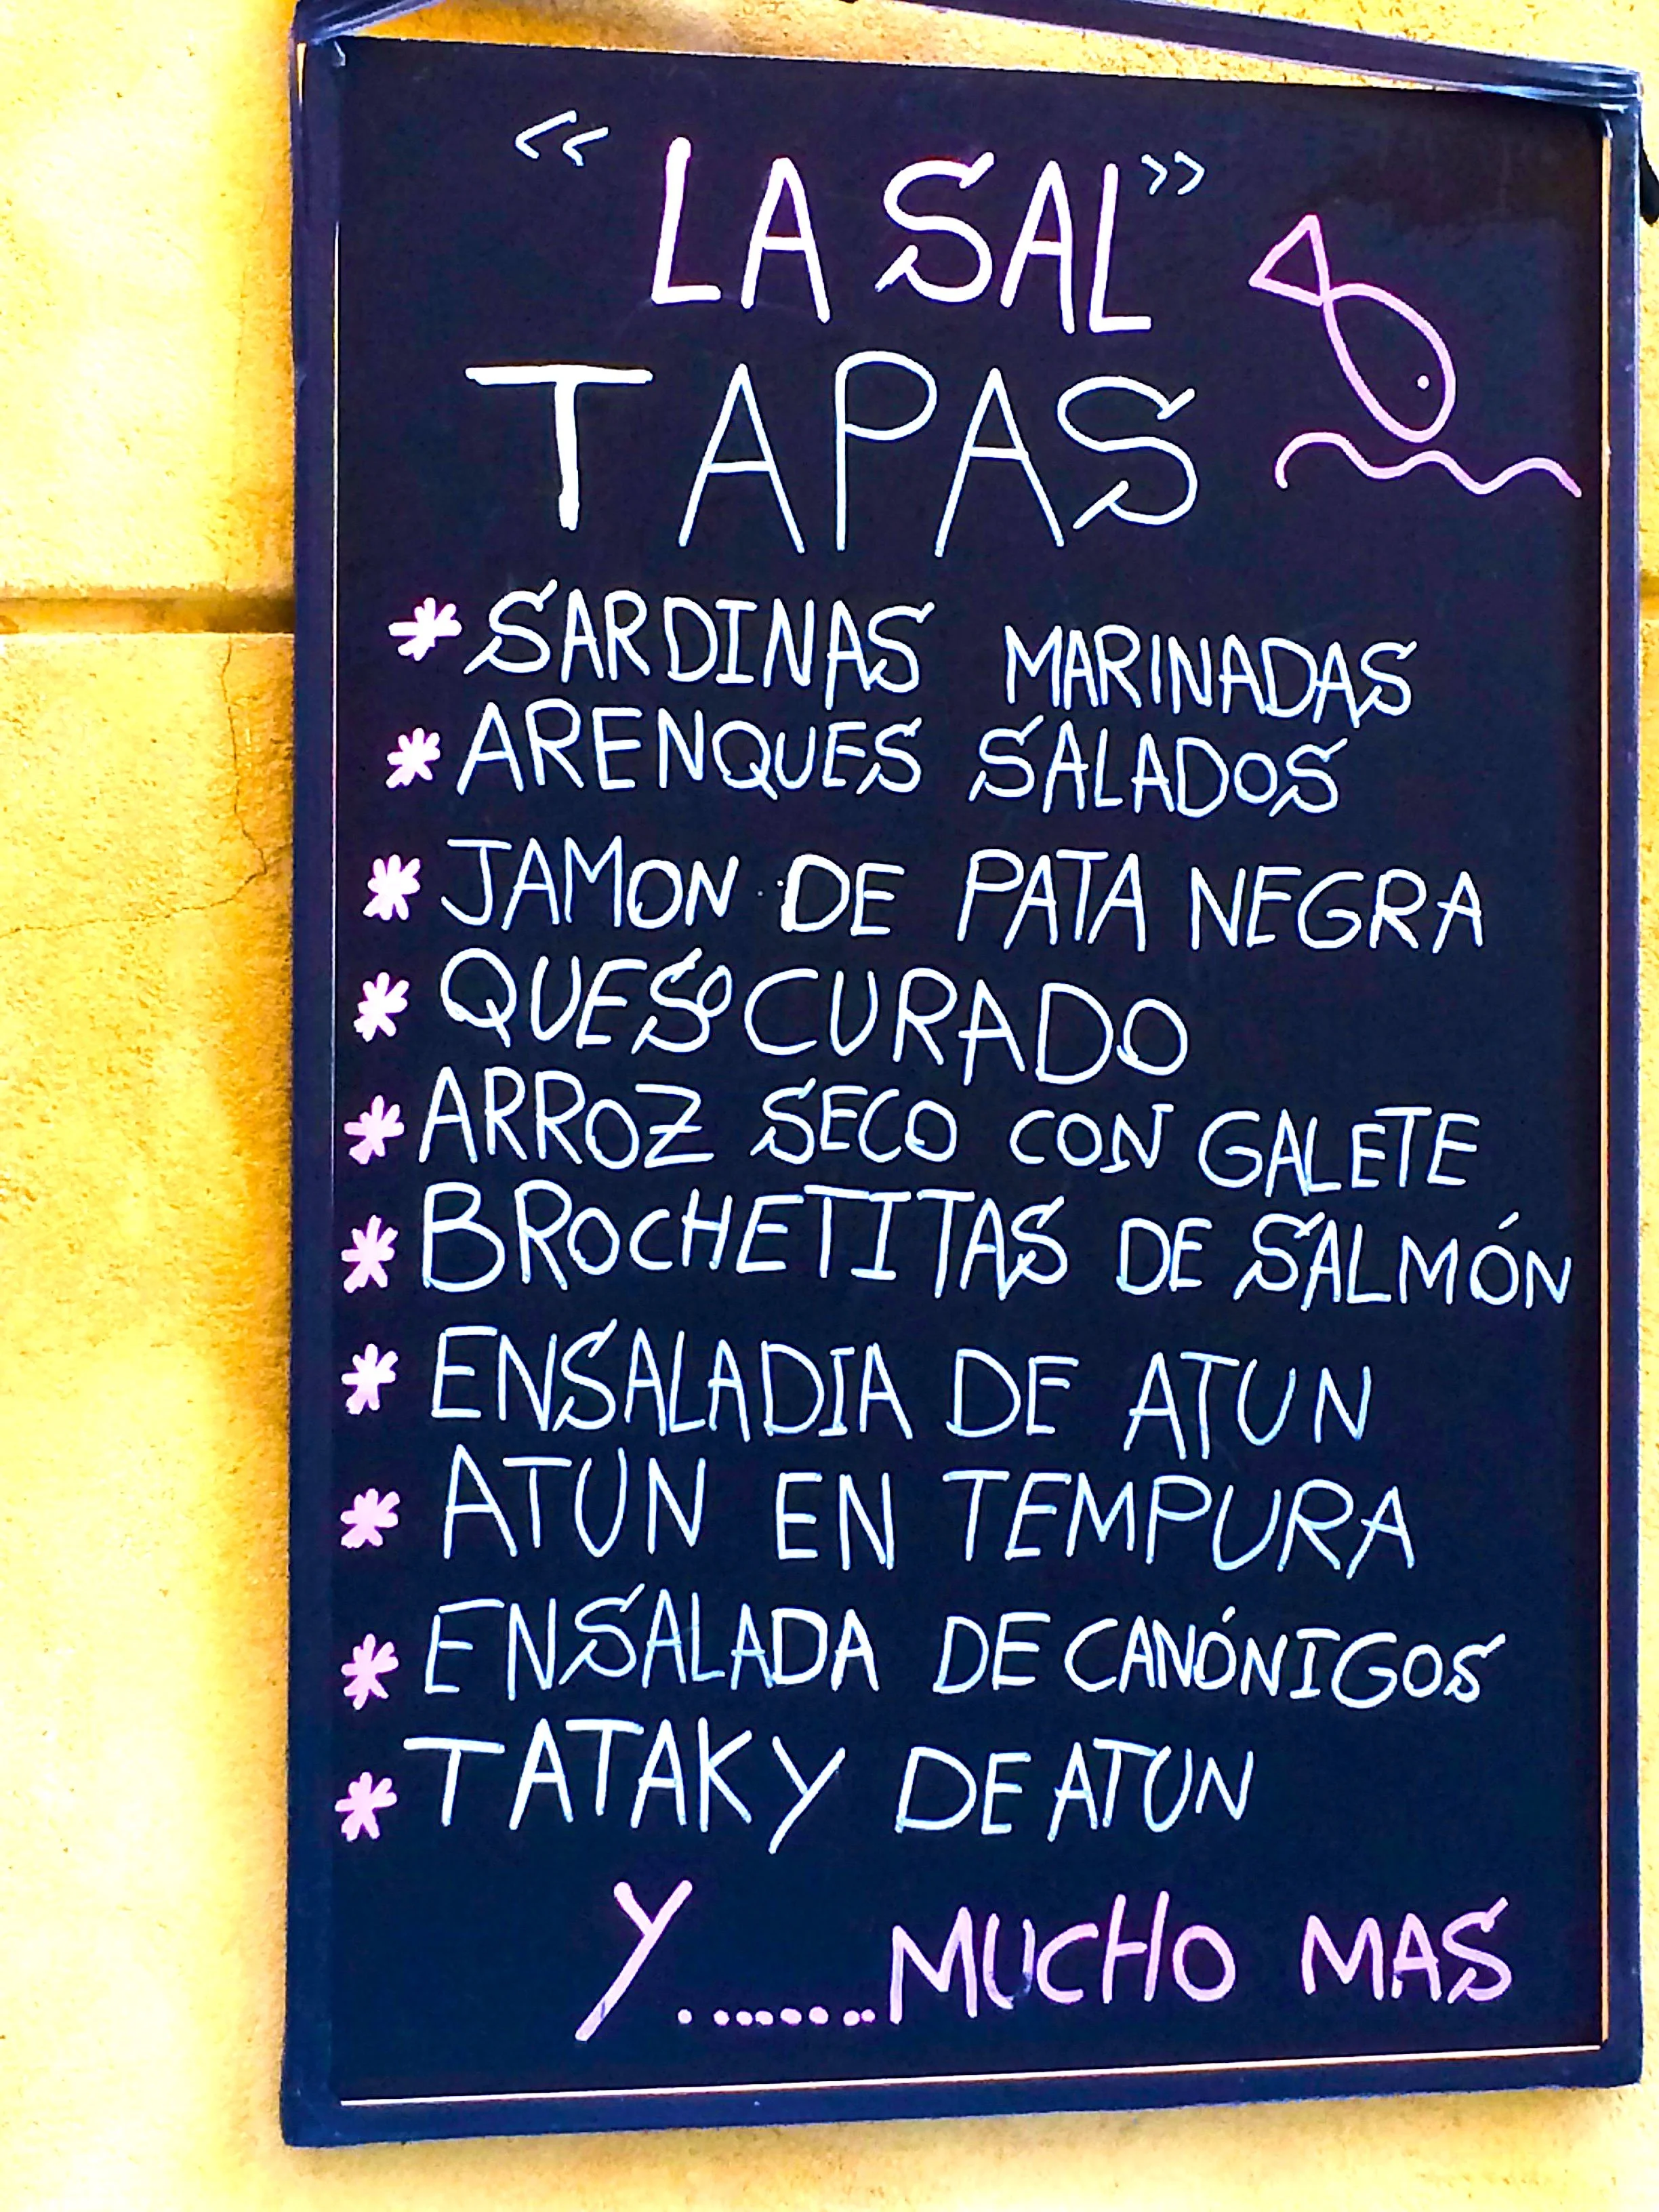 “LA SAL”
TAPAS
* SARDINAS MARINADAS
* ARENQUES SALADOS
* JAMON DE PATA NEGRA
* QUESO CURADO
* ARROZ SECO CON GALETE
* BROCHETITAS DE SALMÓN
* ENSALADIA DE ATUN
* ATUN EN TEMPURA
* ENSALADA DE CANÓNIGOS
* TATAKY DE ATUN
Y.......MUCHO MAS